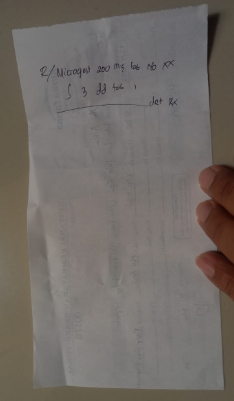 R/ Microgest 200 mg tab no XX
ʃ 3 dd tab 1
det Rx